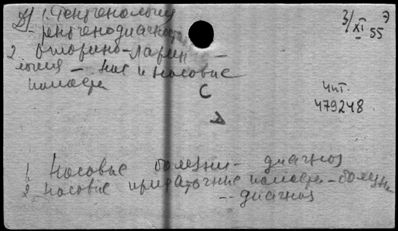 1. Рентгенология
- рентгенодиагностика
3/XI 55
2. Оторино-ларин-
гология - нос и носовые
полости
С
Чит.
479248
А
1. Носовые болезни - диагноз
2. носовые придаточные полости - болезни
-- диагноз